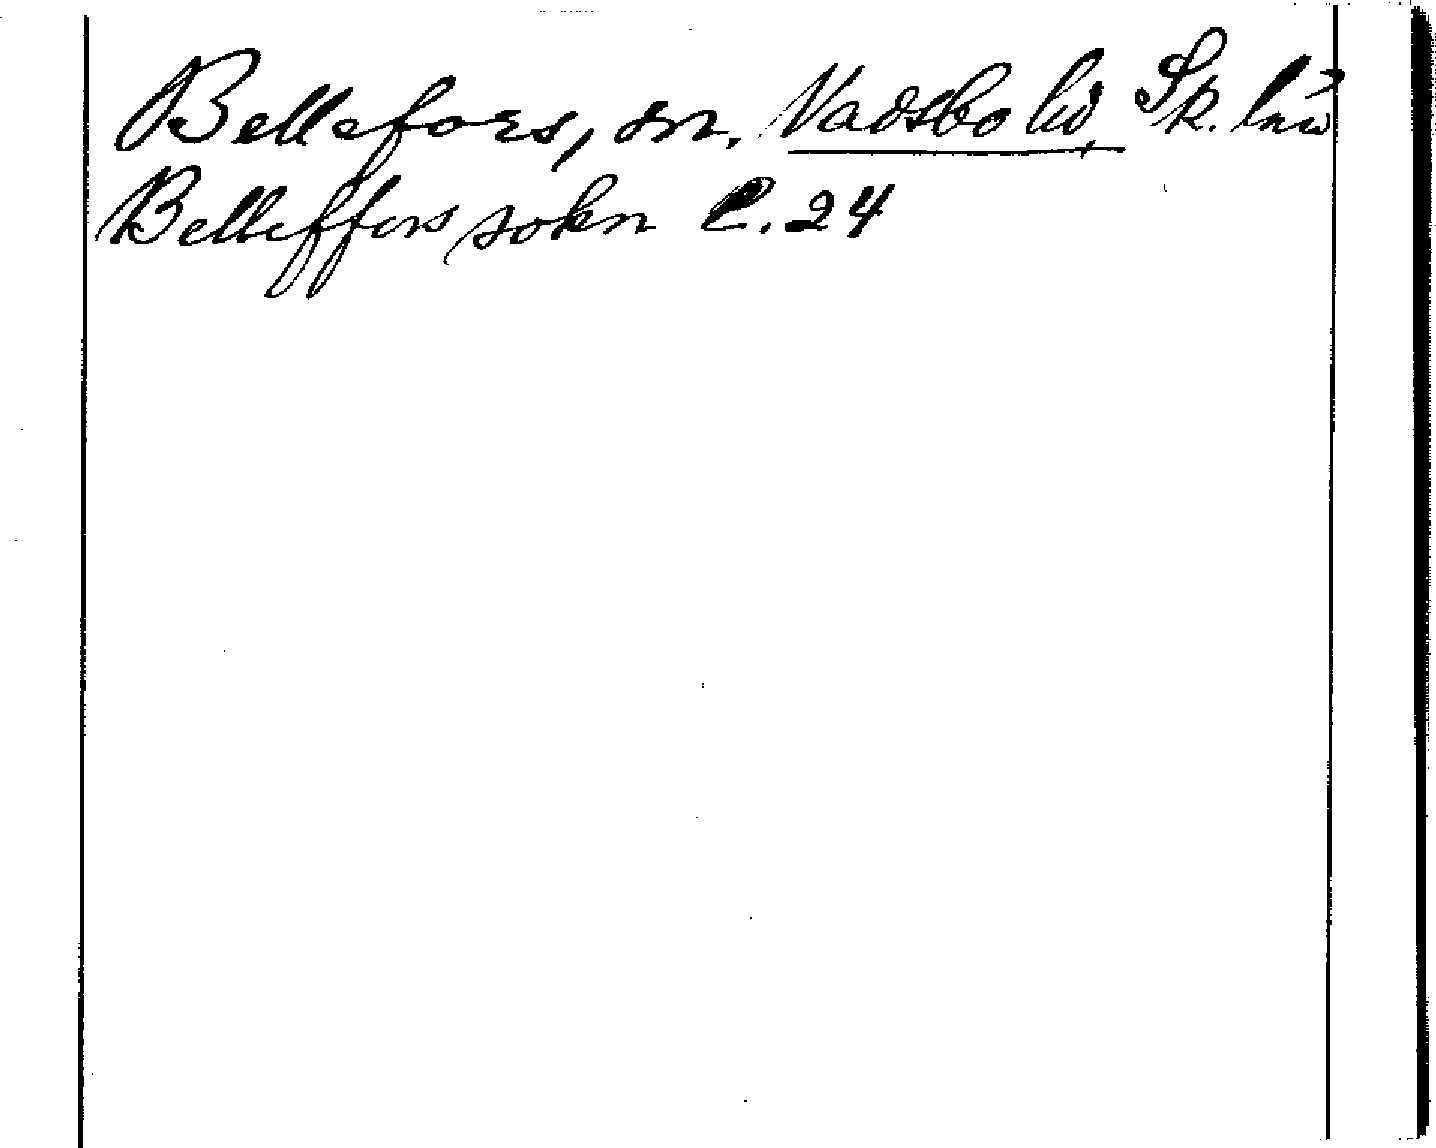 Bellefors, sn, Vadsbo hd, Sk. län
Belleffors sokn C. 24